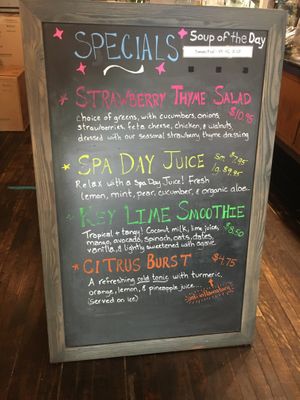 SPECIALS
Soup of the Day
STRAWBERRY THYME SALAD
$10.95
choice of greens, with cucumbers, onions,
strawberries, feta cheese, chicken, & walnuts
dressed with our seasonal strawberry thyme dressing
SPA DAY JUICE
Sm $7.95
lg. $9.95
Relax with a Spa Day Juice! Fresh
lemon, mint, pear, cucumber, & organic aloe.
KEY LIME SMOOTHIE
$8.50
Tropical + tangy! Coconut milk, lime juices,
mango, avocado, spinach, oats, dates,
vanilla, & lightly sweetened with agave.
CITRUS BURST
$4.75
A refreshing cold tonic with turmeric,
orange, lemon, & pineapple juice....
(served on ice)
anti-inflammatory